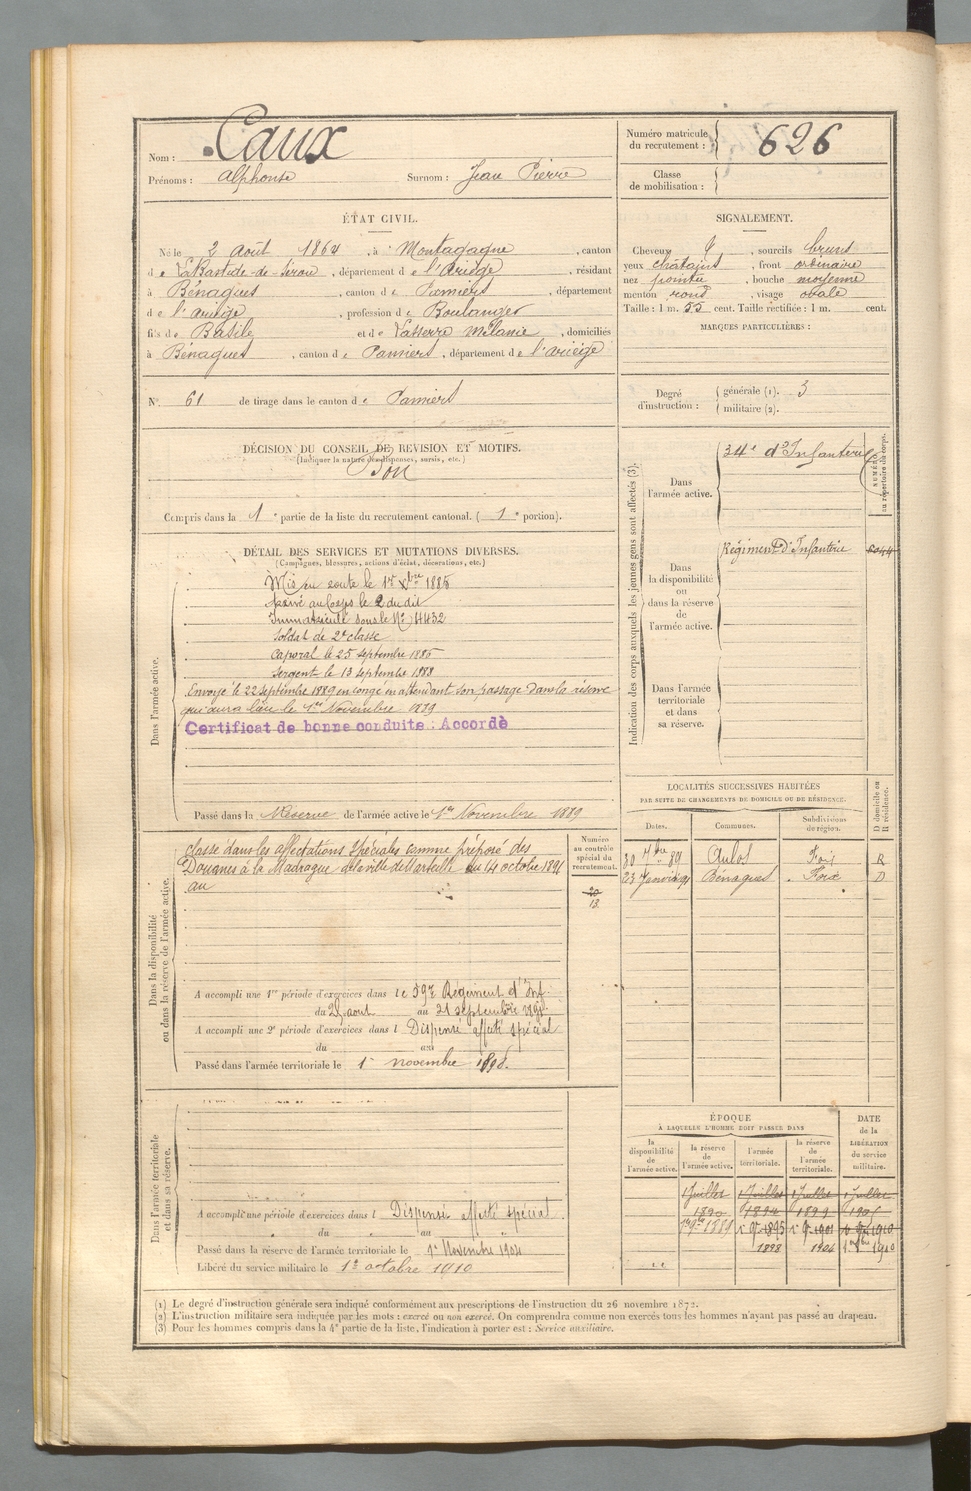 Nom : Caux
Prénoms : Alphonse Surnom : Jean Pierre
Numéro matricule du recrutement : 626
Classe de mobilisation :
ÉTAT CIVIL.
Né le 2 août 1864, à Montagagne, canton
de La Bastide-de-Sérou, département de l'Ariège, résidant
à Bénagues, canton de Pamiers, département
de l'Ariège, profession de Boulanger
fils de Basile et de Lasserre Mélanie, domiciliés
à Bénagues, canton de Pamiers, département de l'Ariège
N° 61 de tirage dans le canton de Pamiers
SIGNALEMENT.
Cheveux, sourcils bruns
yeux châtains, front ordinaire
nez pointu, bouche moyenne
menton rond, visage ovale
Taille : 1 m. 55 cent. Taille rectifiée : 1 m. cent.
MARQUES PARTICULIÈRES :
Degré d'instruction : générale (1). 3
militaire (2).
DÉCISION DU CONSEIL DE REVISION ET MOTIFS.
(Indiquer la nature des dispenses, sursis, etc.)
Bon
Compris dans la 1e partie de la liste du recrutement cantonal. (1e portion).
DÉTAIL DES SERVICES ET MUTATIONS DIVERSES.
(Campagnes, blessures, actions d'éclat, décorations, etc.)
Dans l'armée active.
Mis en route le 1er Xbre 1885
arrivé au Corps le 2 du dit
Immatriculé sous le N° 4432
Soldat de 2e classe
Caporal le 25 septembre 1886
Sergent le 13 septembre 1888
Envoyé le 22 septembre 1889 en congé en attendant son passage dans la réserve
qui aura lieu le 1er Novembre 1889
Certificat de bonne conduite : Accordé
Passé dans la Réserve de l'armée active le 1er Novembre 1889
Indication des corps auxquels les jeunes gens sont affectés (3).
NUMÉRO au répertoire du corps.
Dans l'armée active.
34e d'Infanterie
Dans la disponibilité ou dans la réserve de l'armée active.
Régiment d'Infanterie
Dans l'armée territoriale et dans sa réserve.
LOCALITÉS SUCCESSIVES HABITÉES
PAR SUITE DE CHANGEMENTS DE DOMICILE OU DE RÉSIDENCE.
Dates. Communes. Subdivisions de région. D domicile ou R résidence.
30 7bre 89 Aulos Foix R
23 Janvier 91 Bénagues Foix D
Dans la disponibilité ou dans la réserve de l'armée active.
Numéro au contrôle spécial du recrutement.
20
13
Classé dans les affectations spéciales comme préposé des
Douanes à la Madrague de la ville de Marseille du 14 octobre 1891
au
A accompli une 1re période d'exercices dans le 59e Régiment d'Inf.
du 25 août au 21 septembre
A accompli une 2e période d'exercices dans l Dispensé affecté spécial
du au
Passé dans l'armée territoriale le 1er novembre 1898.
Dans l'armée territoriale et dans sa réserve.
A accompli une période d'exercices dans l Dispensé affecté spécial
du au
Passé dans la réserve de l'armée territoriale le 1er Novembre 1904
Libéré du service militaire le 1er octobre 1910
ÉPOQUE
À LAQUELLE L'HOMME DOIT PASSER DANS
la disponibilité de l'armée active. la réserve de l'armée active. l'armée territoriale. la réserve de l'armée territoriale.
DATE de la LIBÉRATION du service militaire.
1 Juillet 1 Juillet 1 Juillet 1 Juillet
1890 1894 1899 1905
1889 1895 1901 1910
1898 1904 1910
(1) Le degré d'instruction générale sera indiqué conformément aux prescriptions de l'instruction du 26 novembre 1872.
(2) L'instruction militaire sera indiquée par les mots : exercé ou non exercé. On comprendra comme non exercés tous les hommes n'ayant pas passé au drapeau.
(3) Pour les hommes compris dans la 4e partie de la liste, l'indication à porter est : Service auxiliaire.